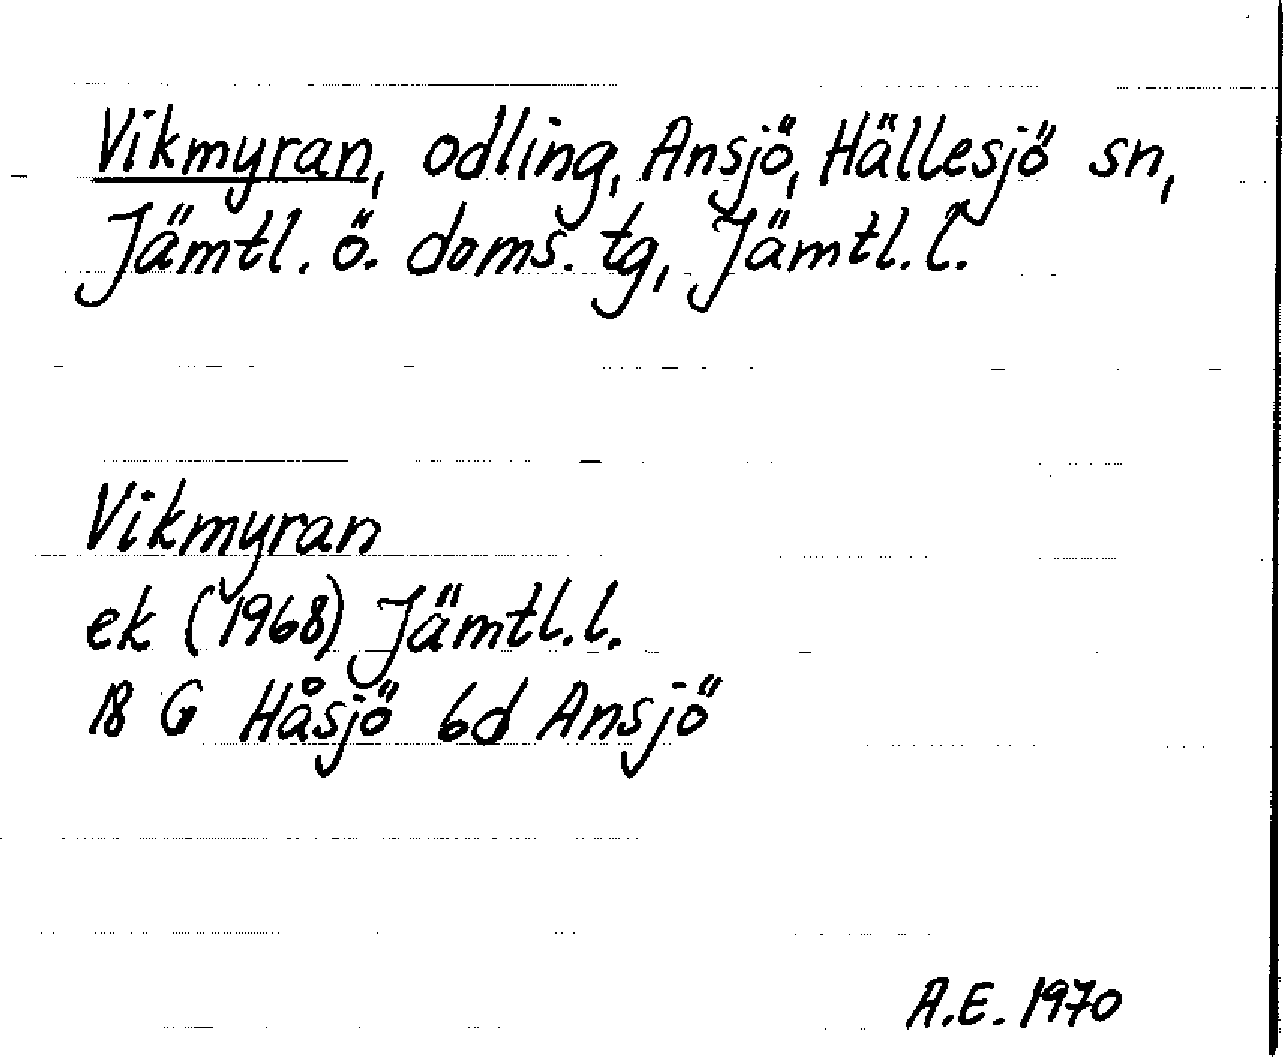 Vikmyran, odling, Ansjö, Hällesjö sn,
Jämtl. ö. doms. tg, Jämtl. l.
Vikmyran
ek (1968) Jämtl. l.
18 G Håsjö 6d Ansjö
A.E. 1970